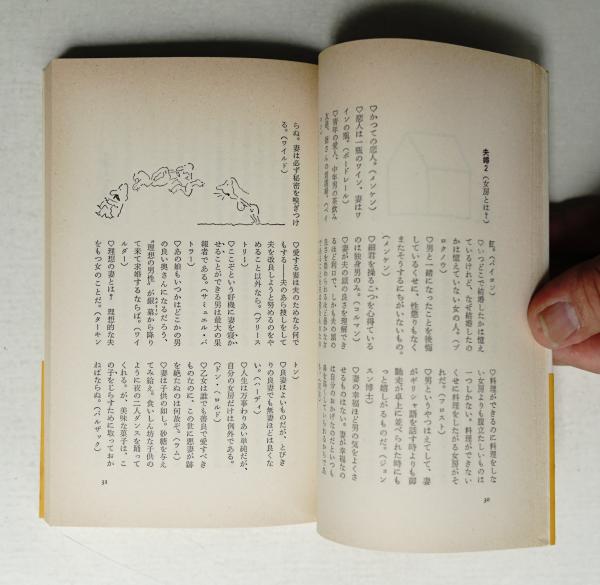 夫婦2〈女房とは?〉
♡かつての恋人。(メンケン)
♡恋人は一瓶のワイン、妻はワ
インの瓶。(ボードレール)
♡青年の愛人、中年男の茶飲み
友達、爺さんの看護婦。(ベイ
虹。(バイロン)
♡いつどこで結婚したかは憶え
ているけれど、なぜ結婚したの
かは憶えていない女の人。(プ
ロクノウ)
♡男と一緒になったことを後悔
しているくせに、性懲りもなく
またそうするにちがいないもの。
(メンケン)
♡細君を操るこつを心得ている
のは独身男のみ。(コルマン)
♡妻が夫の話の良さを理解でき
るほど利口で、しかも夫の頭の
♡料理ができるのに料理をしな
い女房よりも腹立たしいものは
一つしかない。料理ができない
くせに料理をしたがる女房がそ
れだ。(フロスト)
♡男というやつはえてして、妻
がギリシャ語を話す時よりも御
馳走が卓上に並べられた時にも
っと嬉しがるものだ。(ジョン
ソン博士)
♡妻の幸福ほど男の気をよくさ
せるものはない。妻が幸福なの
は自分のおかげなのだといつも
30
らぬ。妻は必ず秘密を嗅ぎつけ
る。(ワイルド)
♡愛する妻は夫のためなら何で
もする――夫のあら捜しをして
夫を改良しようと努めるのをや
めること以外なら。(プリース
トリー)
♡ここぞという好機に妻を寝か
せることができる男は最大の果
報者である。(サミュエル・バ
トラー)
♡あの娘もいつかはどこかの男
の良い奥さんになるだろう、
“理想の男性”が銀幕から降り
て来て求婚するならば。(ワイ
ルダー)
♡理想の妻とは? 理想的な夫
をもつ女のことだ。(ターキン
トン)
♡良妻はよいものだが、とびき
りの良妻でも無妻ほどは良くな
い。(ハーディ)
♡人生は万事わりあい単純だが、
自分の女房だけは例外である。
(ドン・ヘロルド)
♡乙女は誰でも善良で愛すべき
ものなのに、この世に悪妻が跡
を絶たぬのは何故ぞ。(ラム)
♡妻は子供の如し。砂糖を与え
てみ給え。食いしん坊な子供の
ように夜の二人ダンスを踊って
くれる。が、美味な菓子は、こ
の子をじらすために取っておか
ねばならぬ。(バルザック)
31